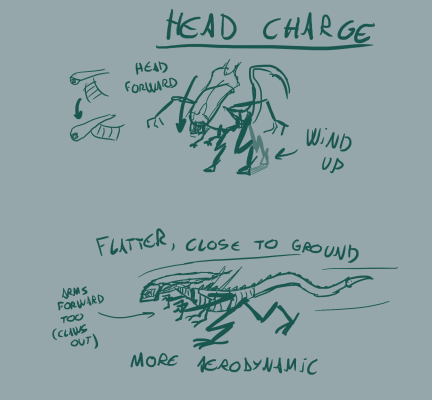 HEAD CHARGE
HEAD
FORWARD
WIND
UP
FLATTER, CLOSE TO GROUND
ARMS
FORWARD
TOO
(CLAWS
OUT)
MORE AERODYNAMIC